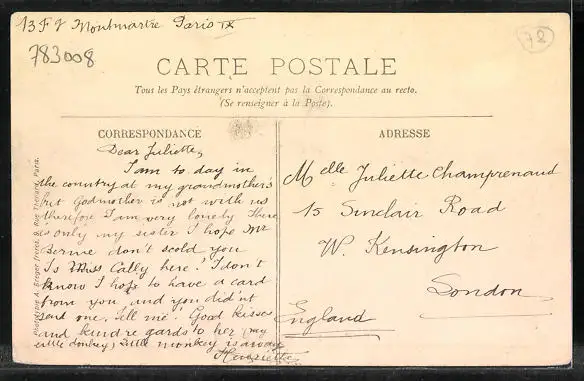 13 Fg Montmartre Paris IX
783008
78
CARTE POSTALE
Tous les Pays étrangers n'acceptent pas la Correspondance au recto.
(Se renseigner à la Poste).
CORRESPONDANCE
Dear Juliette,
I am to day in
the country at my grandmother's
but Godmother is not with us
therefore I am very lonely There
is only my sister I hope Mr
don't scold you
Is Miss Cally here? I don't
know I hope to have a card
from you and you did'nt
send one. Tell me! Good kisses
and kind regards to her (my
little donkey) little monkey is
Henriette
ADRESSE
Melle Juliette Champrenaud
15 Sinclair Road
W. Kensington
London
England
A. Breger frères, 9, Rue Thénard, Paris.